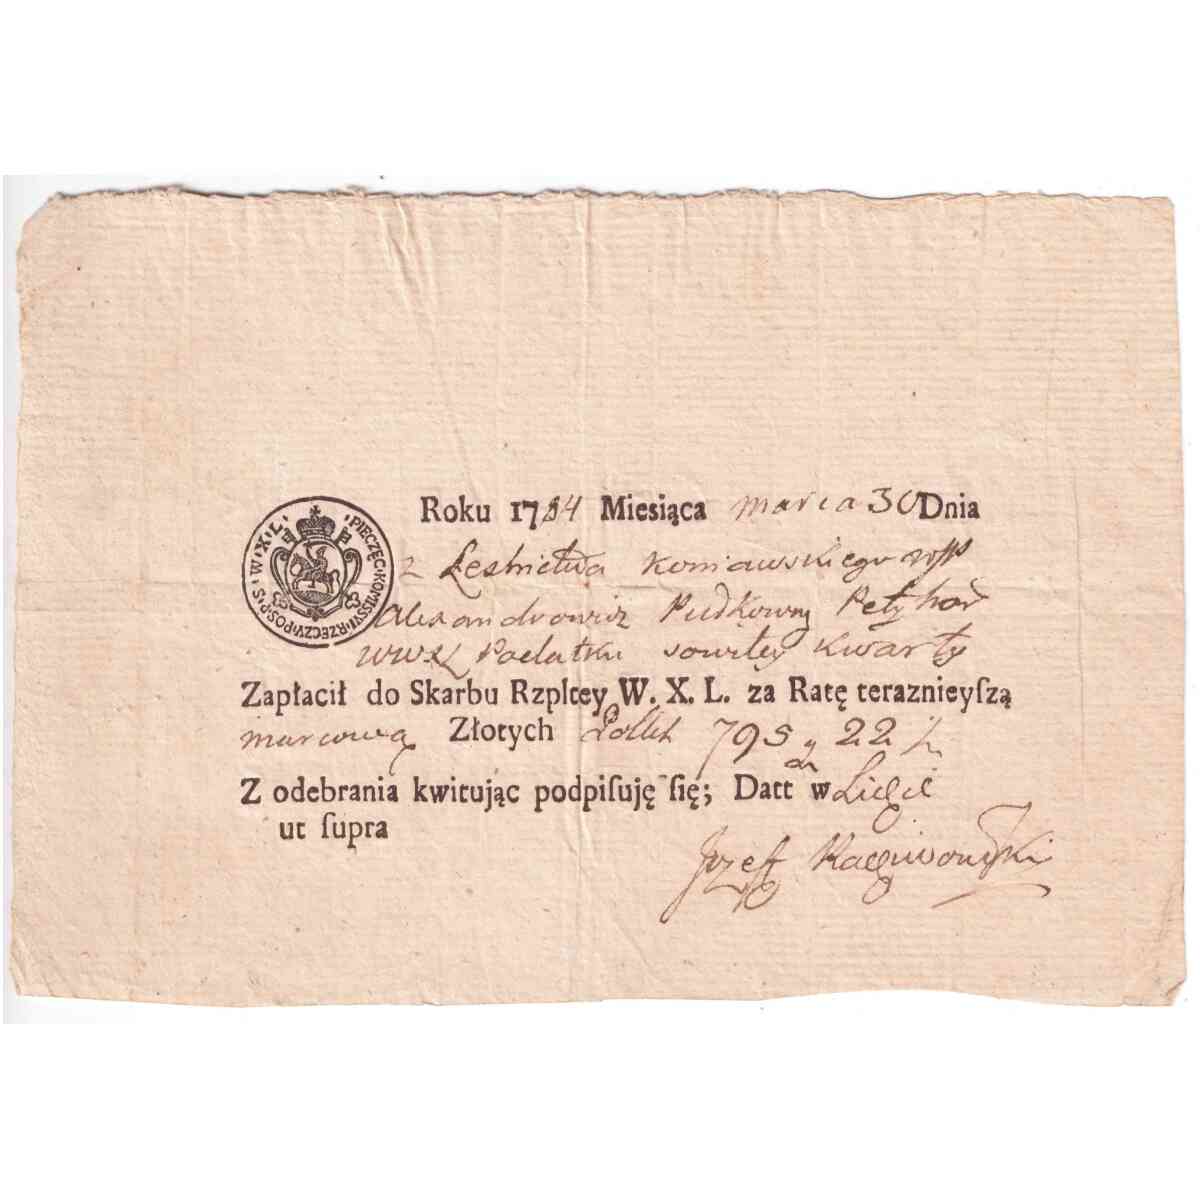 PIECZĘĆ·KOMISSYI·RZECZY·POS·P·S·W·X·L·
Roku 1784 Miesiąca marca 30 Dnia
z Leśnictwa Koniawskiego
Alexandrowicz Pułkowny Petyhor
Podatku kwarty
Zapłacił do Skarbu Rzpltey W. X. L. za Ratę teraznieyſzą
marcową Złotych 795 22
Z odebrania kwituiąc podpiſuję ſię; Datt w Lidzie
ut ſupra
Jozeff